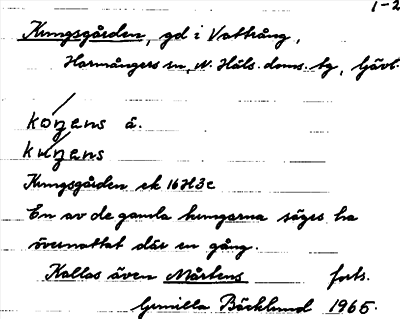 1-2
Kungsgården, gd i Vattrång,
Harmångers sn, N. Häls. doms. tg, Gävl.
koŋens å.
kuŋens
Kungsgården ek 16H3c
En av de gamla kungarna säges ha
övernattat där en gång.
Kallas även Mårtens forts.
Gunilla Bäcklund 1965.